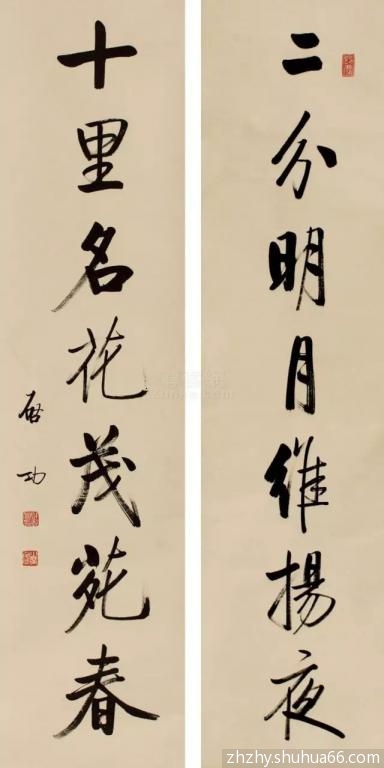 二分明月維揚夜
十里名花茂苑春
啓功
zhzhy.shuhua66.com